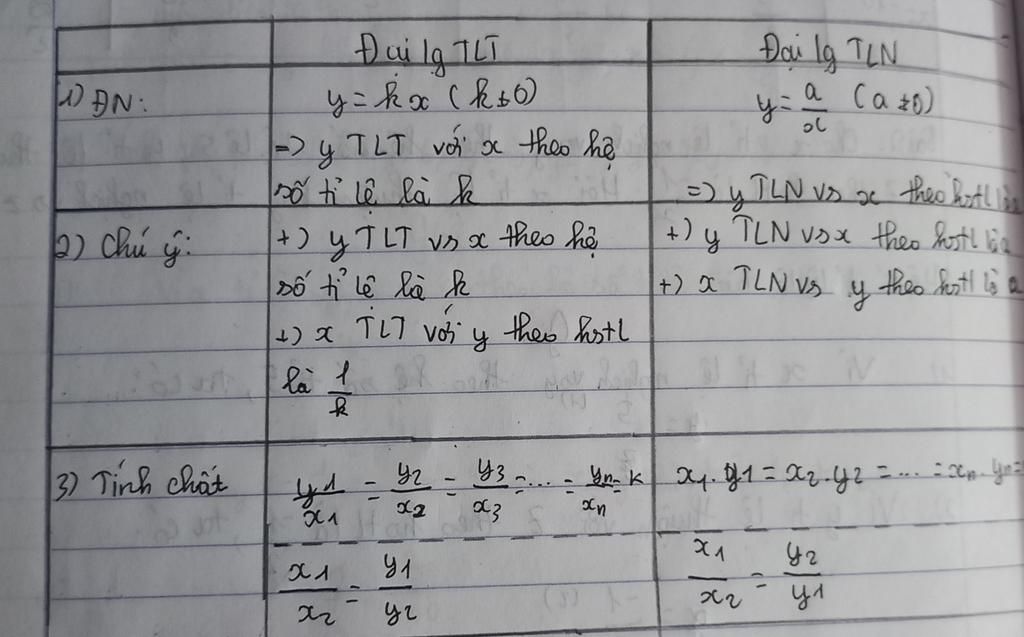 Đại lg TLT
Đại lg TLN
1) ĐN:
y = kx (k≠0)
=> y TLT với x theo hệ
số tỉ lệ là k
y = a/x (a≠0)
=> y TLN vs x theo hstl là
2) Chú ý:
+) y TLT vs x theo hệ
số tỉ lệ là k
+) x TLT với y theo hstl
là 1/k
+) y TLN vs x theo hstl là a
+) x TLN vs y theo hstl là a
3) Tính chất
y1/x1 = y2/x2 = y3/x3 = ... = yn/xn = k
x1/x2 = y1/y2
x1.y1 = x2.y2 = ... = xn.yn =
x1/x2 = y2/y1